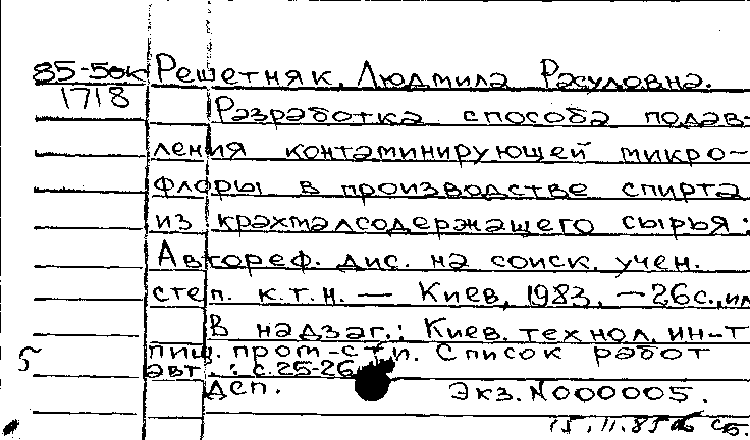 85-5ок Решетняк, Людмила Расуловна.
1718
Разработка способа подав-
ления контаминирующей микро-
флоры в производстве спирта
из крахмалсодержащего сырья:
Автореф. дис. на соиск. учен.
степ. к.т.н. — Киев, 1983. — 26с., ил
В надзаг.: Киев. технол. ин-т
пищ. пром-сти. Список работ
5 авт.: с.25-26
ДСП. Экз. N000005.
15.11.85